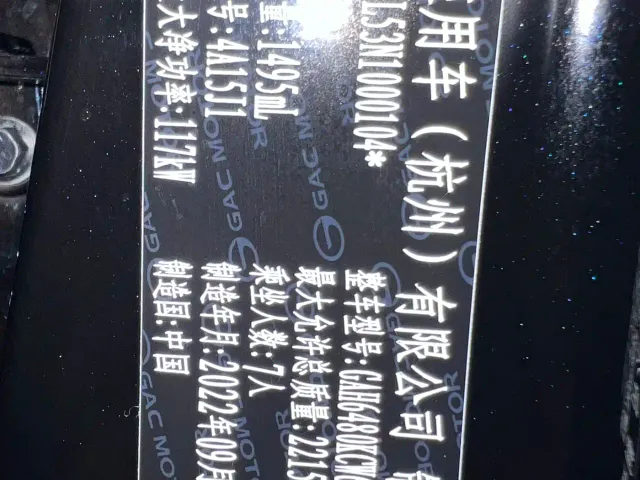 用车（杭州）有限公司
L53N1000104*
整车型号:GAH6480KCW
最大允许总质量:2215
量:1495mL 乘坐人数:7人
号:4A15J1 制造年月:2022年09月
大净功率:117kW 制造国:中国
GAC MOTOR
GAC MOTOR
GAC MOTOR